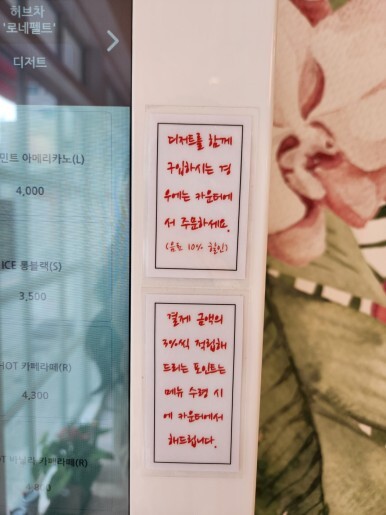 허브차
'로네펠트'
디저트
민트 아메리카노(L)
4,000
ICE 롱블랙(S)
3,500
HOT 카페라떼(R)
4,300
OT 바닐라 카페라떼(R)
디저트를 함께
구입하시는 경
우에는 카운터에
서 주문하세요.
(음료 10% 할인)
결제 금액의
3%씩 적립해
드리는 포인트는
메뉴 수령 시
에 카운터에서
해드립니다.